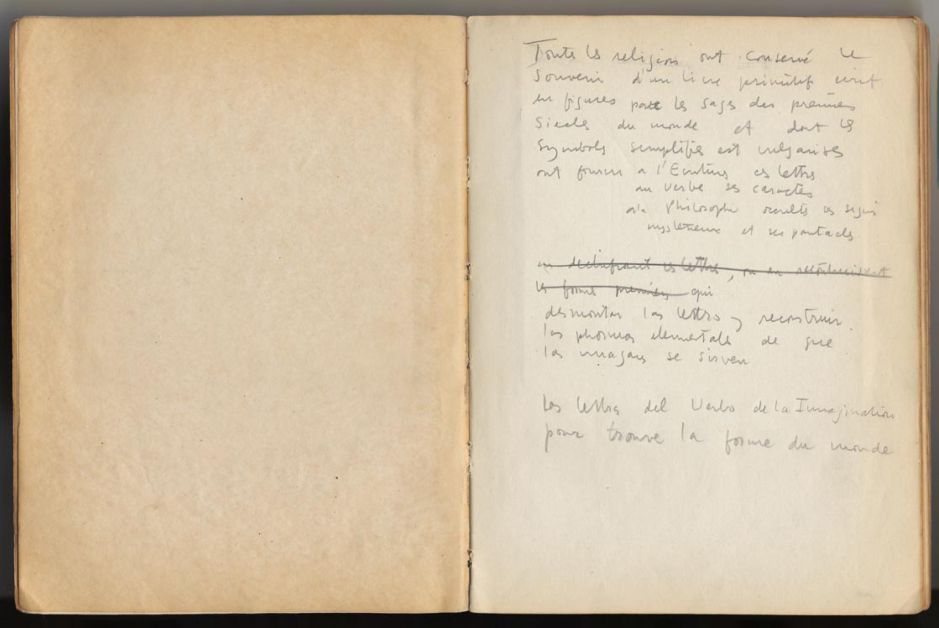 Toutes les religions ont conservé le
souvenir d'un livre primitif écrit
en figures par les sages des premiers
siecles du monde et dont les
symbols simplifiés et vulgarisés
ont fourni a l'Ecriture ses lettres
au Verbe ses caractes
a la Philosophi occulte ses signes
mysterieux et ses pantacles
en dechifrant les lettres, on en
les formes premiers qui
desmontar las lettras y reconstruir
las phormas elementals de que
las images se sirven
Les lettras del Verbo de la Immagination
pour trouve la forme du monde